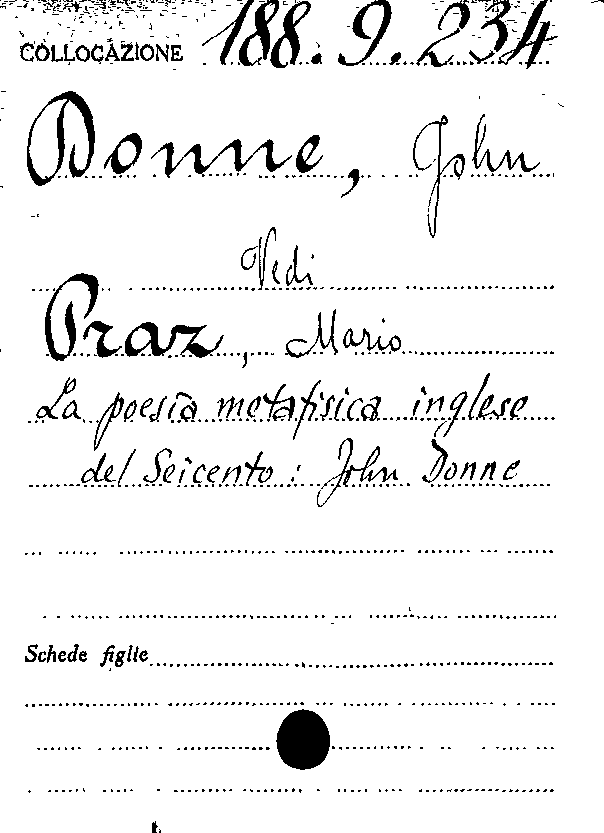 COLLOCAZIONE 188.9.234
Donne, John
Vedi
Praz, Mario
La poesia metafisica inglese
del Seicento: John Donne
Schede figlie